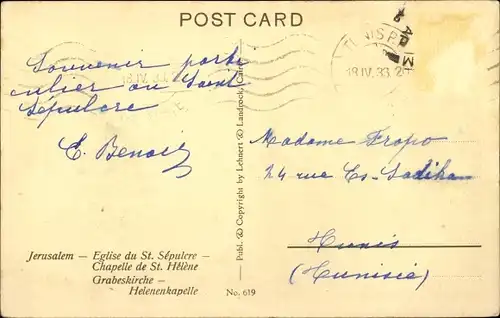 POST CARD
Souvenir parti
culier au Saint
Sépulcre
E. Benoit
TUNIS P
18 IV. 33
18 IV. 33
Madame Fropo
24 rue Es-Sadikia
Tunis
(Tunisie)
Publ. & Copyright by Lehnert & Landrock, Cairo
Jerusalem — Eglise du St. Sépulcre —
Chapelle de St. Hélène
Grabeskirche —
Helenenkapelle
No. 619